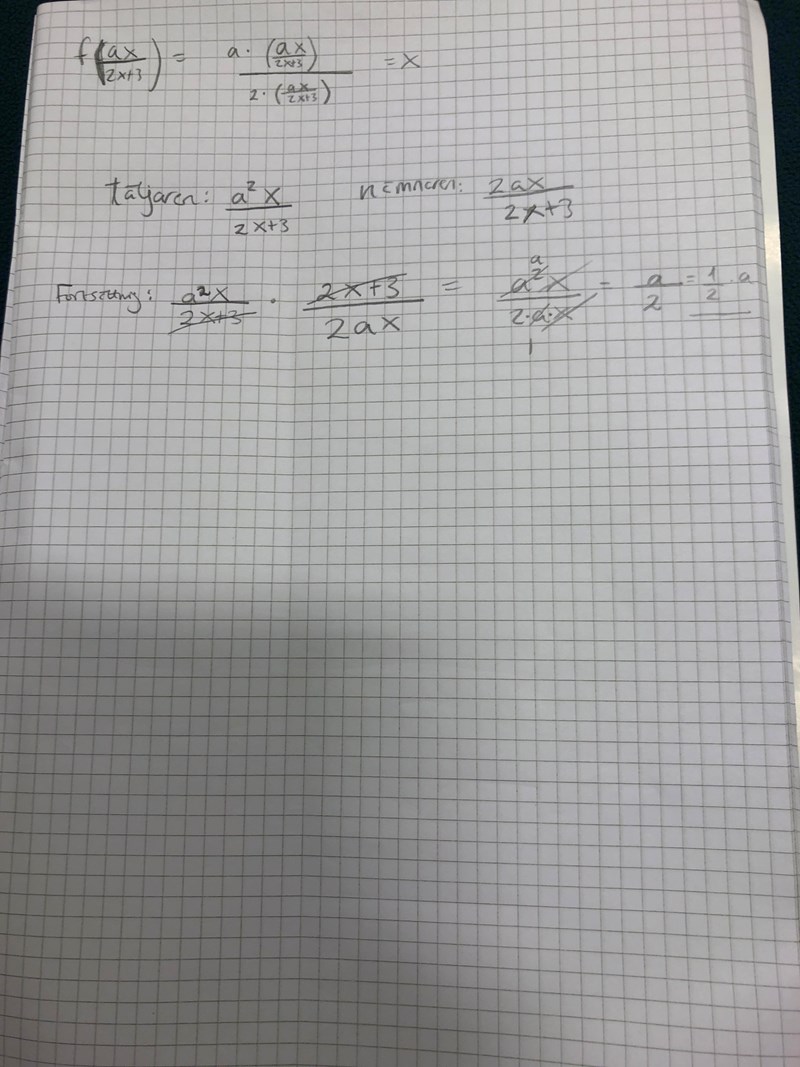 f(ax/2x+3) = a·(ax/2x+3) / 2·(ax/2x+3) = x
täljaren: a²x/2x+3 nämnaren: 2ax/2x+3
Fortsättning: a²x/2x+3 · 2x+3/2ax = a a²x/2·a·x 1 = a/2 = 1/2 · a